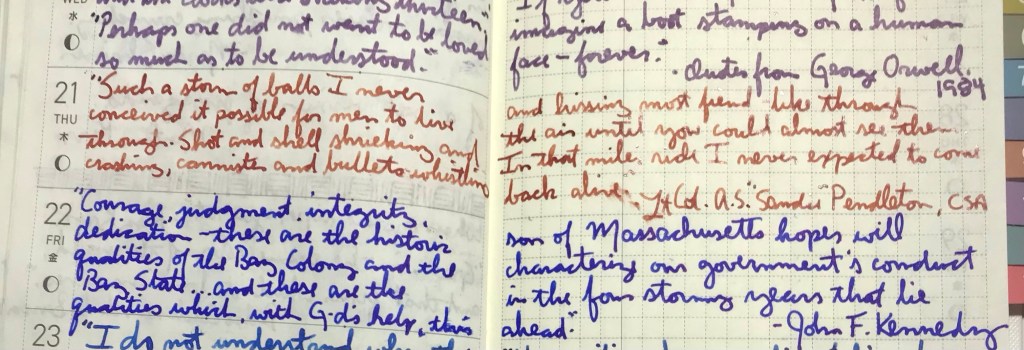 WED
水
clocks were striking thirteen"
"Perhaps one did not want to be loved
so much as to be understood."
If you
imagine a boot stamping on a human
face - forever."
- Quotes from George Orwell,
1984
21
THU
木
"Such a storm of balls I never
conceived it possible for men to live
through. Shot and shell shrieking and
crashing, cannister and bullets whistling
and hissing most fiend-like through
the air until you could almost see them.
In that mile's ride I never expected to come
back alive." - Lt Col. A.S. "Sandie" Pendleton, CSA
22
FRI
金
"Courage, judgment, integrity,
dedication - these are the historic
qualities of the Bay Colony and the
Bay State... and these are the
qualities which, with G-d's help, this
son of Massachusetts hopes will
characterize our government's conduct
in the four stormy years that lie
ahead."
- John F. Kennedy
23
"I do not understand